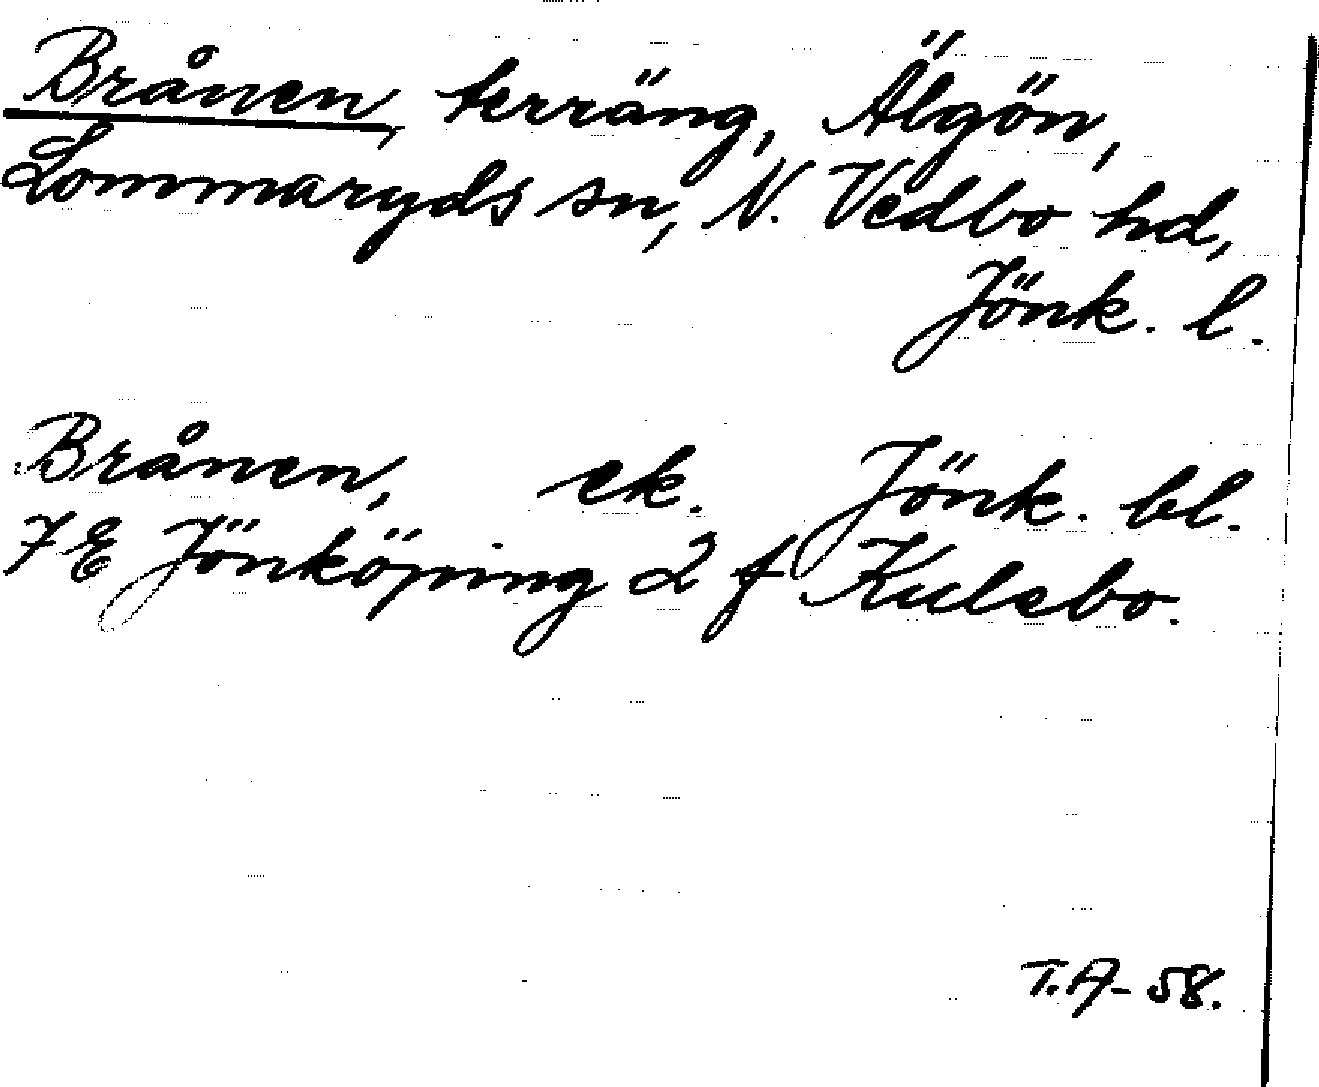 Brånen, terräng, Älgön,
Lommaryds sn, N. Vedbo hd,
Jönk. l.
Brånen, ek. Jönk. bl.
7E Jönköping 2 f Kulebo.
T.A- 58.